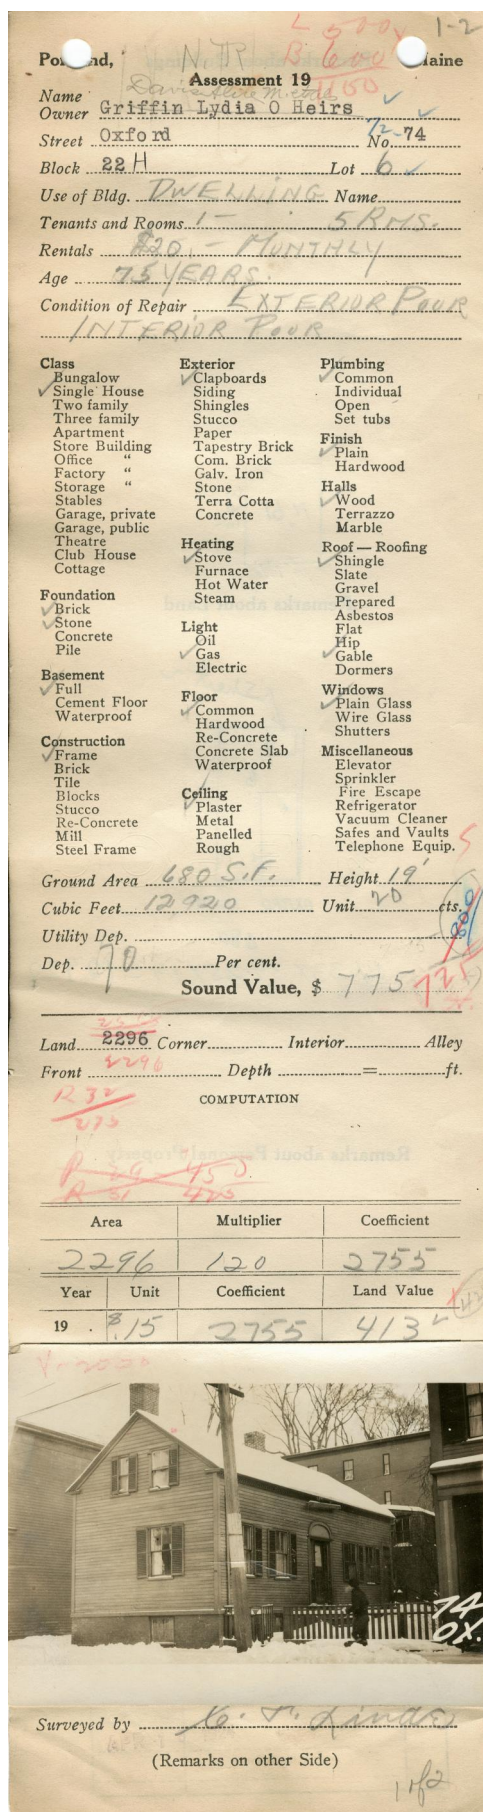 L 500
1-2
Portland, NTR B 600 Maine
Assessment 19 1100
Name Davis Alice M
Owner Griffin Lydia O Heirs
Street Oxford No. 72-74
Block 22 H Lot 6
Use of Bldg. DWELLING Name
Tenants and Rooms 1 - 5 RMS.
Rentals $20.- MONTHLY
Age 75 YEARS.
Condition of Repair EXTERIOR POUR
INTERIOR POUR
Class
Bungalow
Single House
Two family
Three family
Apartment
Store Building
Office "
Factory "
Storage "
Stables
Garage, private
Garage, public
Theatre
Club House
Cottage
Foundation
Brick
Stone
Concrete
Pile
Basement
Full
Cement Floor
Waterproof
Construction
Frame
Brick
Tile
Blocks
Stucco
Re-Concrete
Mill
Steel Frame
Exterior
Clapboards
Siding
Shingles
Stucco
Paper
Tapestry Brick
Com. Brick
Galv. Iron
Stone
Terra Cotta
Concrete
Heating
Stove
Furnace
Hot Water
Steam
Light
Oil
Gas
Electric
Floor
Common
Hardwood
Re-Concrete
Concrete Slab
Waterproof
Ceiling
Plaster
Metal
Panelled
Rough
Plumbing
Common
Individual
Open
Set tubs
Finish
Plain
Hardwood
Halls
Wood
Terrazzo
Marble
Roof — Roofing
Shingle
Slate
Gravel
Prepared
Asbestos
Flat
Hip
Gable
Dormers
Windows
Plain Glass
Wire Glass
Shutters
Miscellaneous
Elevator
Sprinkler
Fire Escape
Refrigerator
Vacuum Cleaner
Safes and Vaults
Telephone Equip.
Ground Area 680 S.F. Height 19'
Cubic Feet 12920 Unit 20 cts.
Utility Dep.
Dep. 70 Per cent.
Sound Value, $ 775 725
Land 2296 Corner Interior Alley
Front 2296 Depth = ft.
R 32
275
COMPUTATION
R 29 - 450
R 31 425
Area Multiplier Coefficient
2296 120 2755
Year Unit Coefficient Land Value
19 . $.15 2755 413
V-2000
74
OX.
Surveyed by
(Remarks on other Side)
1 of 2